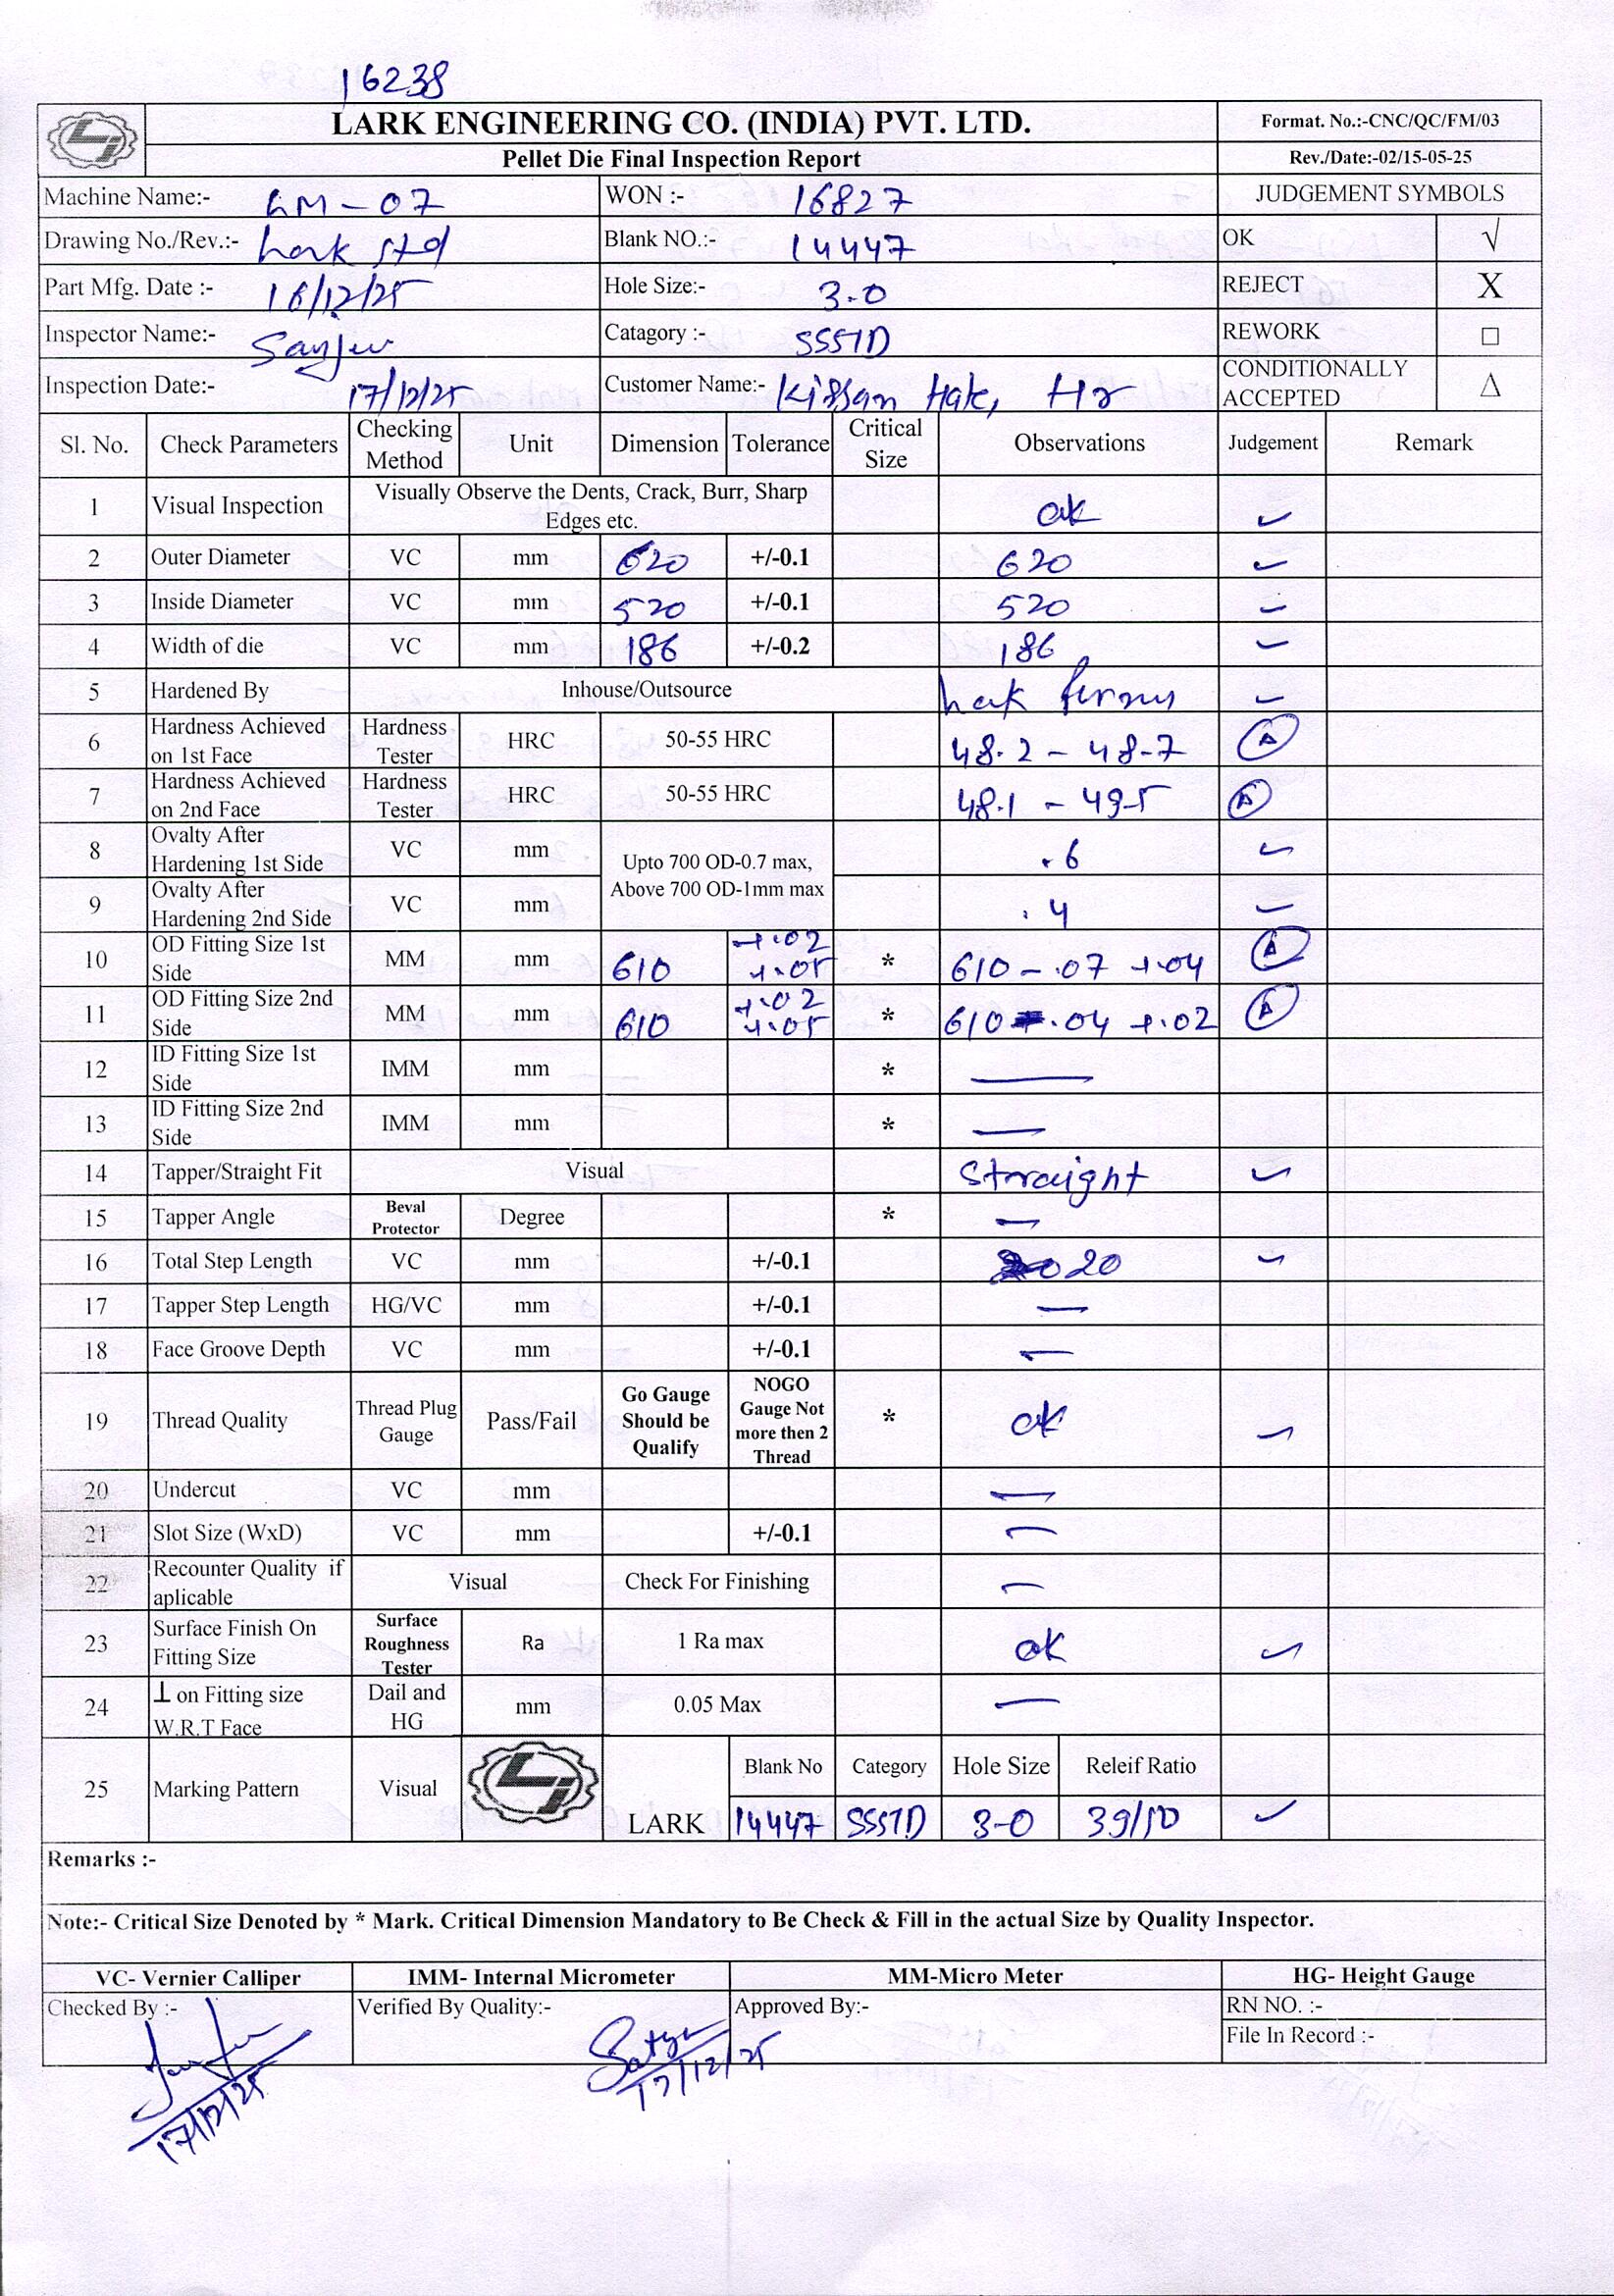 16238
LARK ENGINEERING CO. (INDIA) PVT. LTD.
Format. No.:-CNC/QC/FM/03
Pellet Die Final Inspection Report
Rev./Date:-02/15-05-25
Machine Name:- LM-07 WON :- 16827 JUDGEMENT SYMBOLS
Drawing No./Rev.:- Lark std Blank NO.:- 14447 OK √
Part Mfg. Date :- 16/12/25 Hole Size:- 3.0 REJECT X
Inspector Name:- Sanjeev Catagory :- SSSTD REWORK □
Inspection Date:- 17/12/25 Customer Name:- Kissan Hr CONDITIONALLY ACCEPTED △
Sl. No. Check Parameters Checking Method Unit Dimension Tolerance Critical Size Observations Judgement Remark
1 Visual Inspection Visually Observe the Dents, Crack, Burr, Sharp Edges etc. ok ✓
2 Outer Diameter VC mm 620 +/-0.1 620 ✓
3 Inside Diameter VC mm 520 +/-0.1 520 ✓
4 Width of die VC mm 186 +/-0.2 186 ✓
5 Hardened By Inhouse/Outsource ✓
6 Hardness Achieved on 1st Face Hardness Tester HRC 50-55 HRC 48.2 - 48.7 △
7 Hardness Achieved on 2nd Face Hardness Tester HRC 50-55 HRC 48.1 - 49.5 △
8 Ovalty After Hardening 1st Side VC mm Upto 700 OD-0.7 max, Above 700 OD-1mm max .6 ✓
9 Ovalty After Hardening 2nd Side VC mm .4 ✓
10 OD Fitting Size 1st Side MM mm 610 +.02 +.05 * 610 -.07 +.04 △
11 OD Fitting Size 2nd Side MM mm 610 +.02 +.05 * 610 .04 +.02 △
12 ID Fitting Size 1st Side IMM mm * —
13 ID Fitting Size 2nd Side IMM mm * —
14 Tapper/Straight Fit Visual Straight ✓
15 Tapper Angle Beval Protector Degree * —
16 Total Step Length VC mm +/-0.1 20 ✓
17 Tapper Step Length HG/VC mm +/-0.1 —
18 Face Groove Depth VC mm +/-0.1 —
19 Thread Quality Thread Plug Gauge Pass/Fail Go Gauge Should be Qualify NOGO Gauge Not more then 2 Thread * ok ✓
20 Undercut VC mm —
21 Slot Size (WxD) VC mm +/-0.1 —
22 Recounter Quality if aplicable Visual Check For Finishing —
23 Surface Finish On Fitting Size Surface Roughness Tester Ra 1 Ra max ok ✓
24 ⊥ on Fitting size W.R.T Face Dail and HG mm 0.05 Max —
25 Marking Pattern Visual LARK Blank No Category Hole Size Releif Ratio
14447 SSSTD 3-0 39/50 ✓
Remarks :-
Note:- Critical Size Denoted by * Mark. Critical Dimension Mandatory to Be Check & Fill in the actual Size by Quality Inspector.
VC- Vernier Calliper IMM- Internal Micrometer MM-Micro Meter HG- Height Gauge
Checked By :- Verified By Quality:- Approved By:- RN NO. :-
File In Record :-
17/12/25
17/12/25